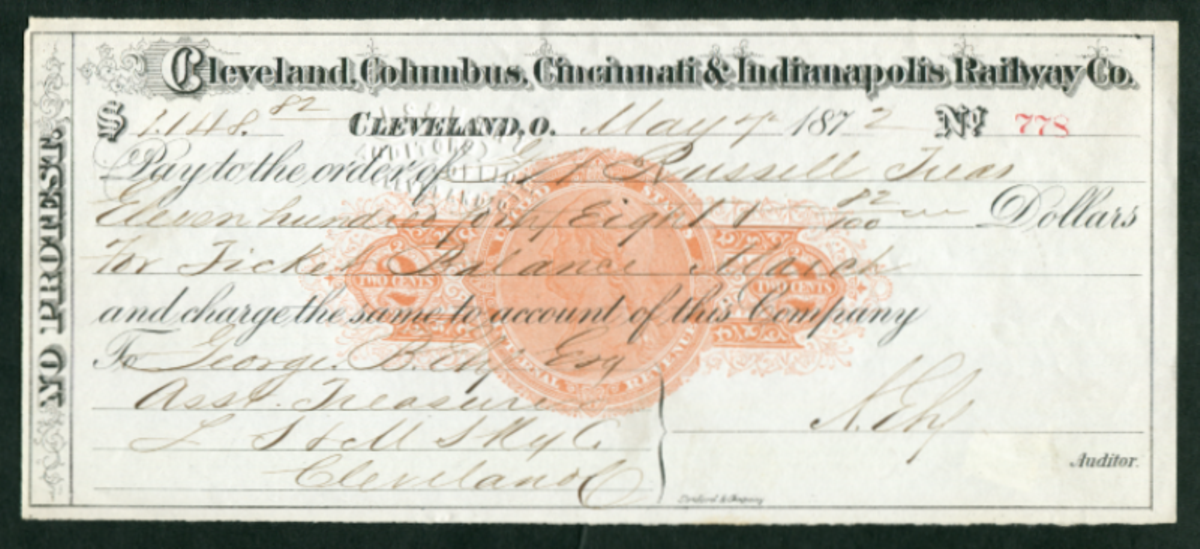 NO PROTEST.
Cleveland, Columbus, Cincinnati & Indianapolis Railway Co.
$ 1.148. 82 CLEVELAND, O. May 7 1872 No. 778
Pay to the order of Russell Treas
Eleven hundred forty Eight & 82/100 Dollars
For Ticket Balance March
TWO CENTS 2 TWO CENTS 2
and charge the same to account of this Company
To George B. Ely Esq
INTERNAL REVENUE
Asst. Treasurer
L S & M S Ry Co.
Cleveland O
Auditor.